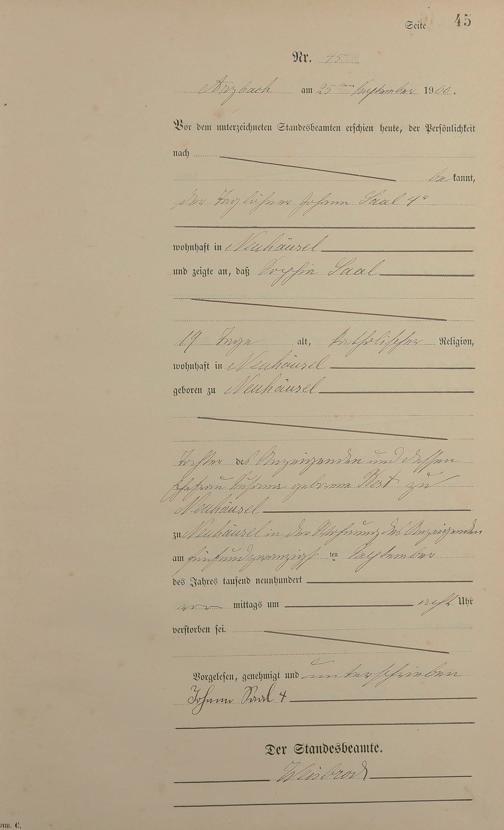 Seite 45
Nr. 45
Arzbach am 25ten September 1900.
Vor dem unterzeichneten Standesbeamten erschien heute, der Persönlichkeit
nach
be kannt,
der Taglöhner Johann Saal 4r
wohnhaft in Neuhäusel
und zeigte an, daß Sophie Saal
19 Tage alt, katholischer Religion,
wohnhaft in Neuhäusel
geboren zu Neuhäusel
Tochter des Anzeigenden und dessen
Ehefrau geborene zu
Neuhäusel
zu Neuhäusel in der Wohnung des Anzeigenden
am fünfundzwanzigsten September
des Jahres tausend neunhundert
vor mittags um acht Uhr
verstorben sei.
Vorgelesen, genehmigt und unterschrieben
Johann Saal 4
Der Standesbeamte.